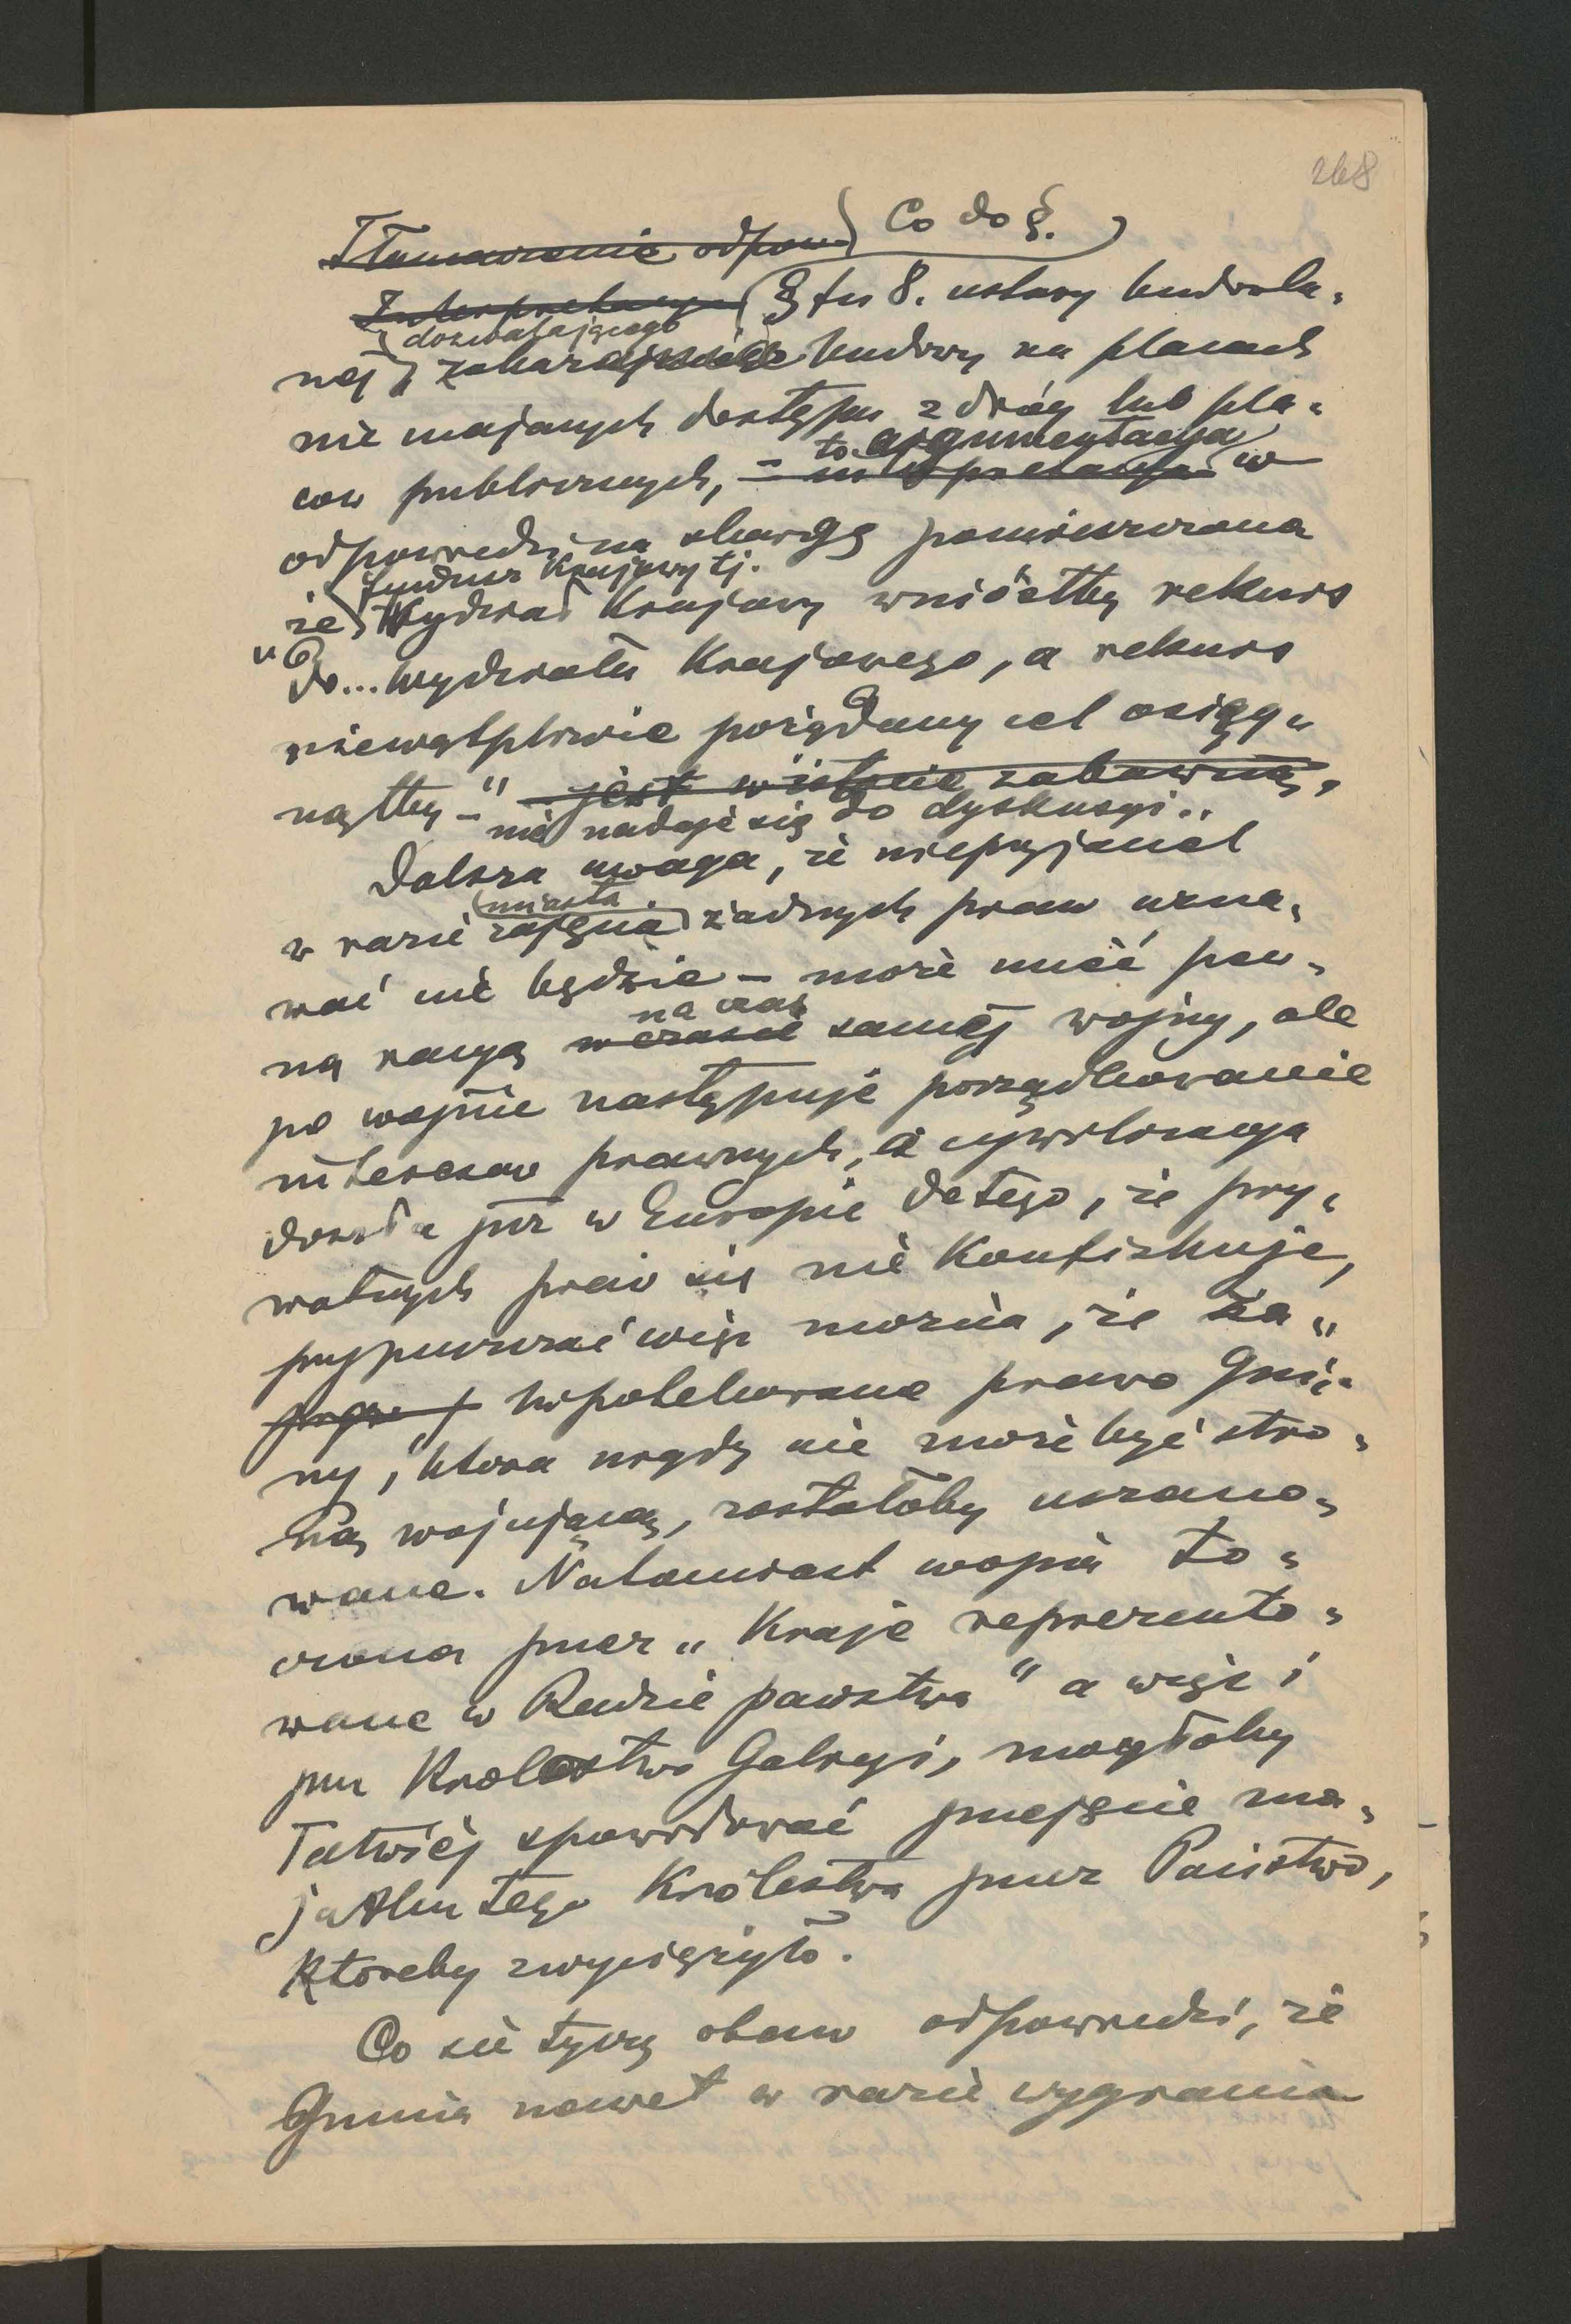 268
Tłumaczenie odpow. Co do §.
Interpretacya § fu 8. ustawy budowla-
dozwalającego
nej, zakazującego budowy na placach
nie mających dostępu z dróg lub pla-
to argumentacya
ców publicznych, – interpretacya w
odpowiedzi na skargę pomieszczona
fundusz Krajowy tj.
że Wydział Krajowy wniósłby rekurs
"do... Wydziału Krajowego, a rekurs
niewątpliwie pożądany cel osiąg-
nąłby –" jest wistocie zabawną,
nie nadaje się do dyskusyi..
Dalsza uwaga, że nieprzyjaciel
miasta
w razie zajęcia żadnych praw uzna-
wać nie będzie – może mieć pew-
na czas
ną racyę w czasie samej wojny, ale
po wojnie następuje porządkowanie
interesów prawnych, a cywilizacya
doszła już w Europie do tego, że pry-
watnych praw się nie konfiskuje,
przypuszczać więc można, że za-
hipotekowane prawo Gmi-
ny, która nigdy nie może być stro-
ną wojującą, zostałoby uszano-
wane. Natomiast wojna to-
czona przez "Kraje reprezento-
wane w Radzie państwa" a więc i
prz Królestwo Galicyi, mogłaby
łatwiej spowodować przejęcie ma-
jątku tego Królestwa przez Państwo,
któreby zwyciężyło.
Co sie tyczy obaw odpowiedzi, że
Gmina nawet w razie wygrania